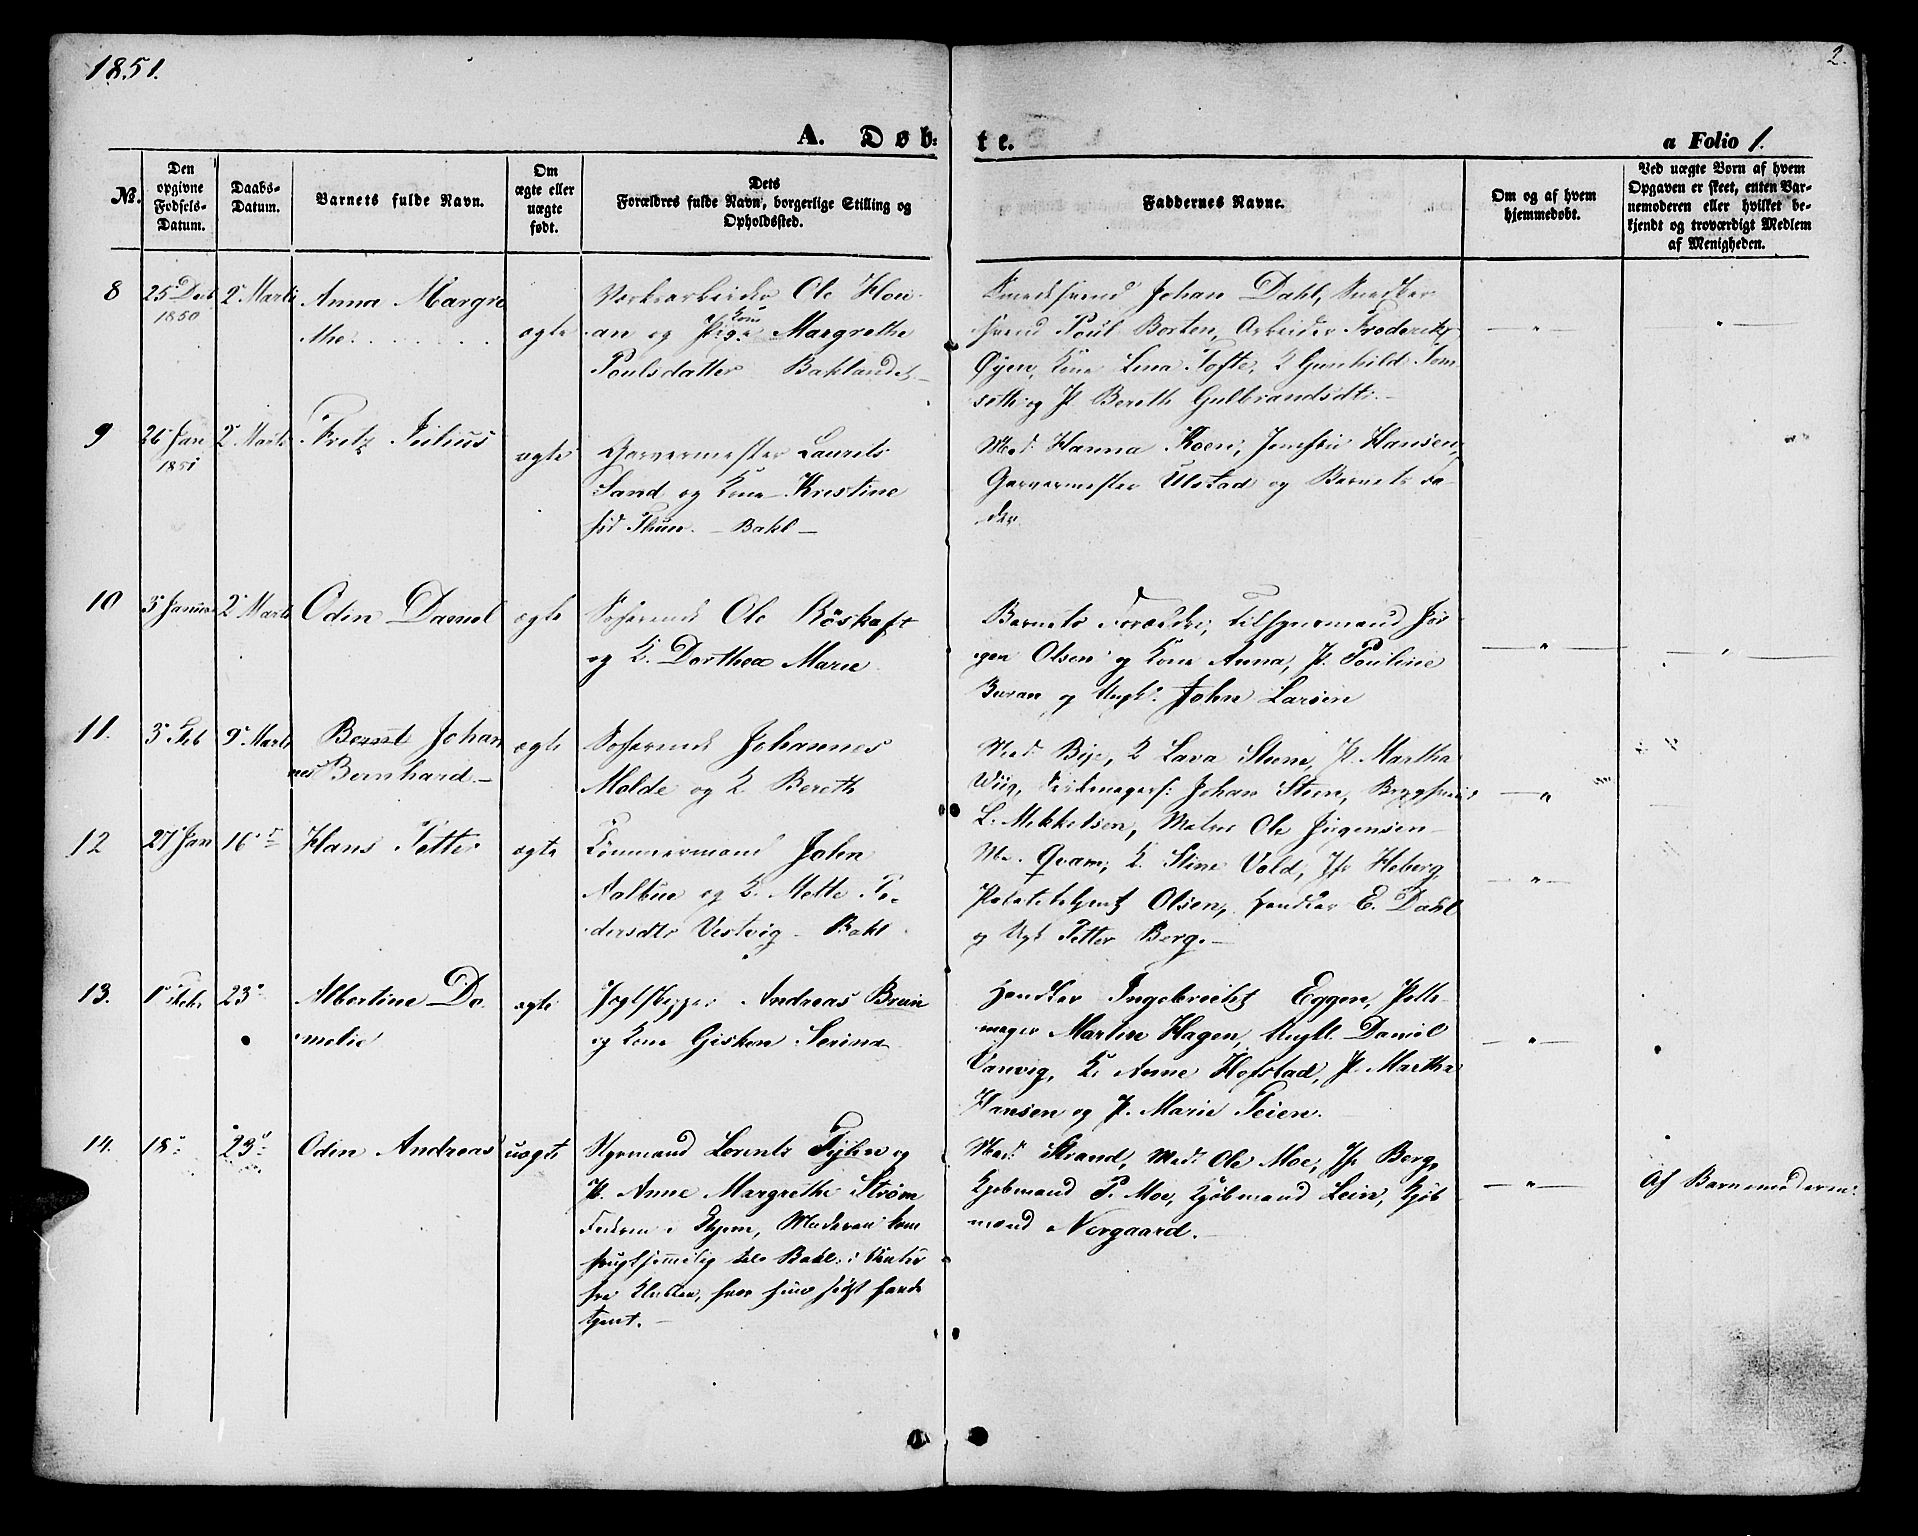 1851.
2.
A. Døb-
te.
a Folio 1.
No.
Den opgivne Fødsels-Datum.
Daabs-Datum.
Barnets fulde Navn.
Om ægte eller uægte født.
Dets Forældres fulde Navn, borgerlige Stilling og Opholdssted.
Faddernes Navne.
Om og af hvem hjemmedøbt.
Ved uægte Børn af hvem Opgaven er skeet, enten Barnemoderen eller hvilket bekjendt og troværdigt Medlem af Menigheden.
8 25 Decb 1850 2 Marts
Anna Margre
the
ægte
Værksarbeider Ole Hou
an og Kone Margrethe
Poulsdatter Baklandet
Smedsvend Johan Dahl, Snedker
svend Poul Borten, Arbeider Frederik
Øyen, Kone Lina Tofte, K Gunhild Tom
seth og P. Bereth Gulbrandsdtr.
9 26 Jan 1851 2 Marts
Fritz Julius
ægte
Garvermester Laurits
Sand og Kone Kristine
fød Thun. Bakl
Mad: Hanna Koen, Jomfru Hansen,
Garvermester Ulstad og Barnets Fa
der
10 3 Januar 2 Marts
Odin Daniel
ægte
Ole Röskaft
og K. Dorthea Marie
Barnets Forældre, Tilsynsmand Jör
gen Olsen og Kone Anna, P. Pauline
Buran og Ungk. John Larsen
11. 3 Feb 9 Marts
Bernt Johan
nes Bernhard
ægte
Johannes
Molde og K Bereth
Mad: Bye, K Lava Steene, P. Martha
Wiig, Johan Steen,
L. Mikkelsen, Matros Ole Jürgensen
12 27 Jan 16
Hans Petter
ægte
Tømmermand John
Aalbue og K. Mette Pe-
dersdtr Vestvig Bakl
Md. Qvam, K. Stine Vold, Jfr Heberg
Olsen, Handler E. Dahl
og Ugk Petter Berg.
13. 1 Febr 23
Albertine Do
melie
ægte
Jagtskipper Andreas Bruun
og Kone Gisken Serina
Handler Ingebrigt Eggen, Potte
mager Martin Hagen, Ungkl. Daniel
Vanvig, K. Anne Hofstad, P. Martha
Hansen og P. Marie Teien.
14. 18 23
Odin Andreas
uægte
Styrmand Lorents og
P. Anne Margrethe Strøm
Faderen i Moderen kom
til Bakl: i Vinter
fra hvor hun sidst havde
tjent.
Mad: Strand, Mad: Ole Moe, Jfr Berg,
Kjøbmand P. Moe, Kjøbmand Lein, Kjøb
mand Norgaard.
Af Barnemoderen